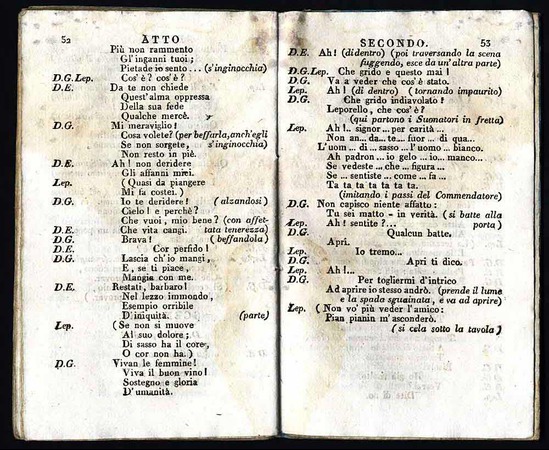 52
ATTO
Più non rammento
Gl'inganni tuoi;
Pietade io sento... (s'inginocchia)
D.G.Lep. Cos'è? cos'è?
D.E. Da te non chiede
Quest'alma oppressa
Della sua fede
Qualche mercè.
D.G. Mi meraviglio!
Cosa volete? (per beffarla, anch'egli
Se non sorgete, s'inginocchia)
Non resto in piè.
D.E. Ah! non deridere
Gli affanni miei.
Lep. (Quasi da piangere
Mi fa costei.)
D.G. Io te deridere! (alzandosi)
Cielo! e perchè?
Che vuoi, mio bene? (con affet-
D.E. Che vita cangi. tata tenerezza)
D.G. Brava! (beffandola)
D.E. Cor perfido!
D.G. Lascia ch'io mangi,
E, se ti piace,
Mangia con me.
D.E. Restati, barbaro!
Nel lezzo immondo,
Esempio orribile
D'iniquità. (parte)
Lep. (Se non si muove
Al suo dolore;
Di sasso ha il core,
O cor non ha.)
D.G. Vivan le femmine!
Viva il buon vino!
Sostegno e gloria
D'umanità.
SECONDO.
53
D.E. Ah! (di dentro) (poi traversando la scena
fuggendo, esce da un'altra parte)
D.G.Lep. Che grido è questo mai!
D.G. Va a veder che cos'è stato.
Lep. Ah! (di dentro) (tornando impaurito)
D.G. Che grido indiavolato!
Leporello, che cos'è?
(qui partono i Suonatori in fretta)
Lep. Ah!.. signor... per carità...
Non an... da... te... fuor... di qua...
L'uom... di... sasso.. l'uomo.. bianco.
Ah padron... io gelo... io... manco...
Se vedeste... che... figura...
Se... sentiste... come... fa...
Ta ta ta ta ta ta ta.
(imitando i passi del Commendatore)
D.G. Non capisco niente affatto:
Tu sei matto - in verità. (si batte alla
Lep. Ah! sentite?... porta)
D.G. Qualcun batte,
Apri.
Lep. Io tremo...
D.G. Apri ti dico.
Lep. Ah!...
D.G. Per togliermi d'intrico
Ad aprire io stesso andrò. (prende il lume
e la spada sguainata, e va ad aprire)
Lep. (Non vo' più veder l'amico:
Pian pianin m'asconderò.
(si cela sotto la tavola)